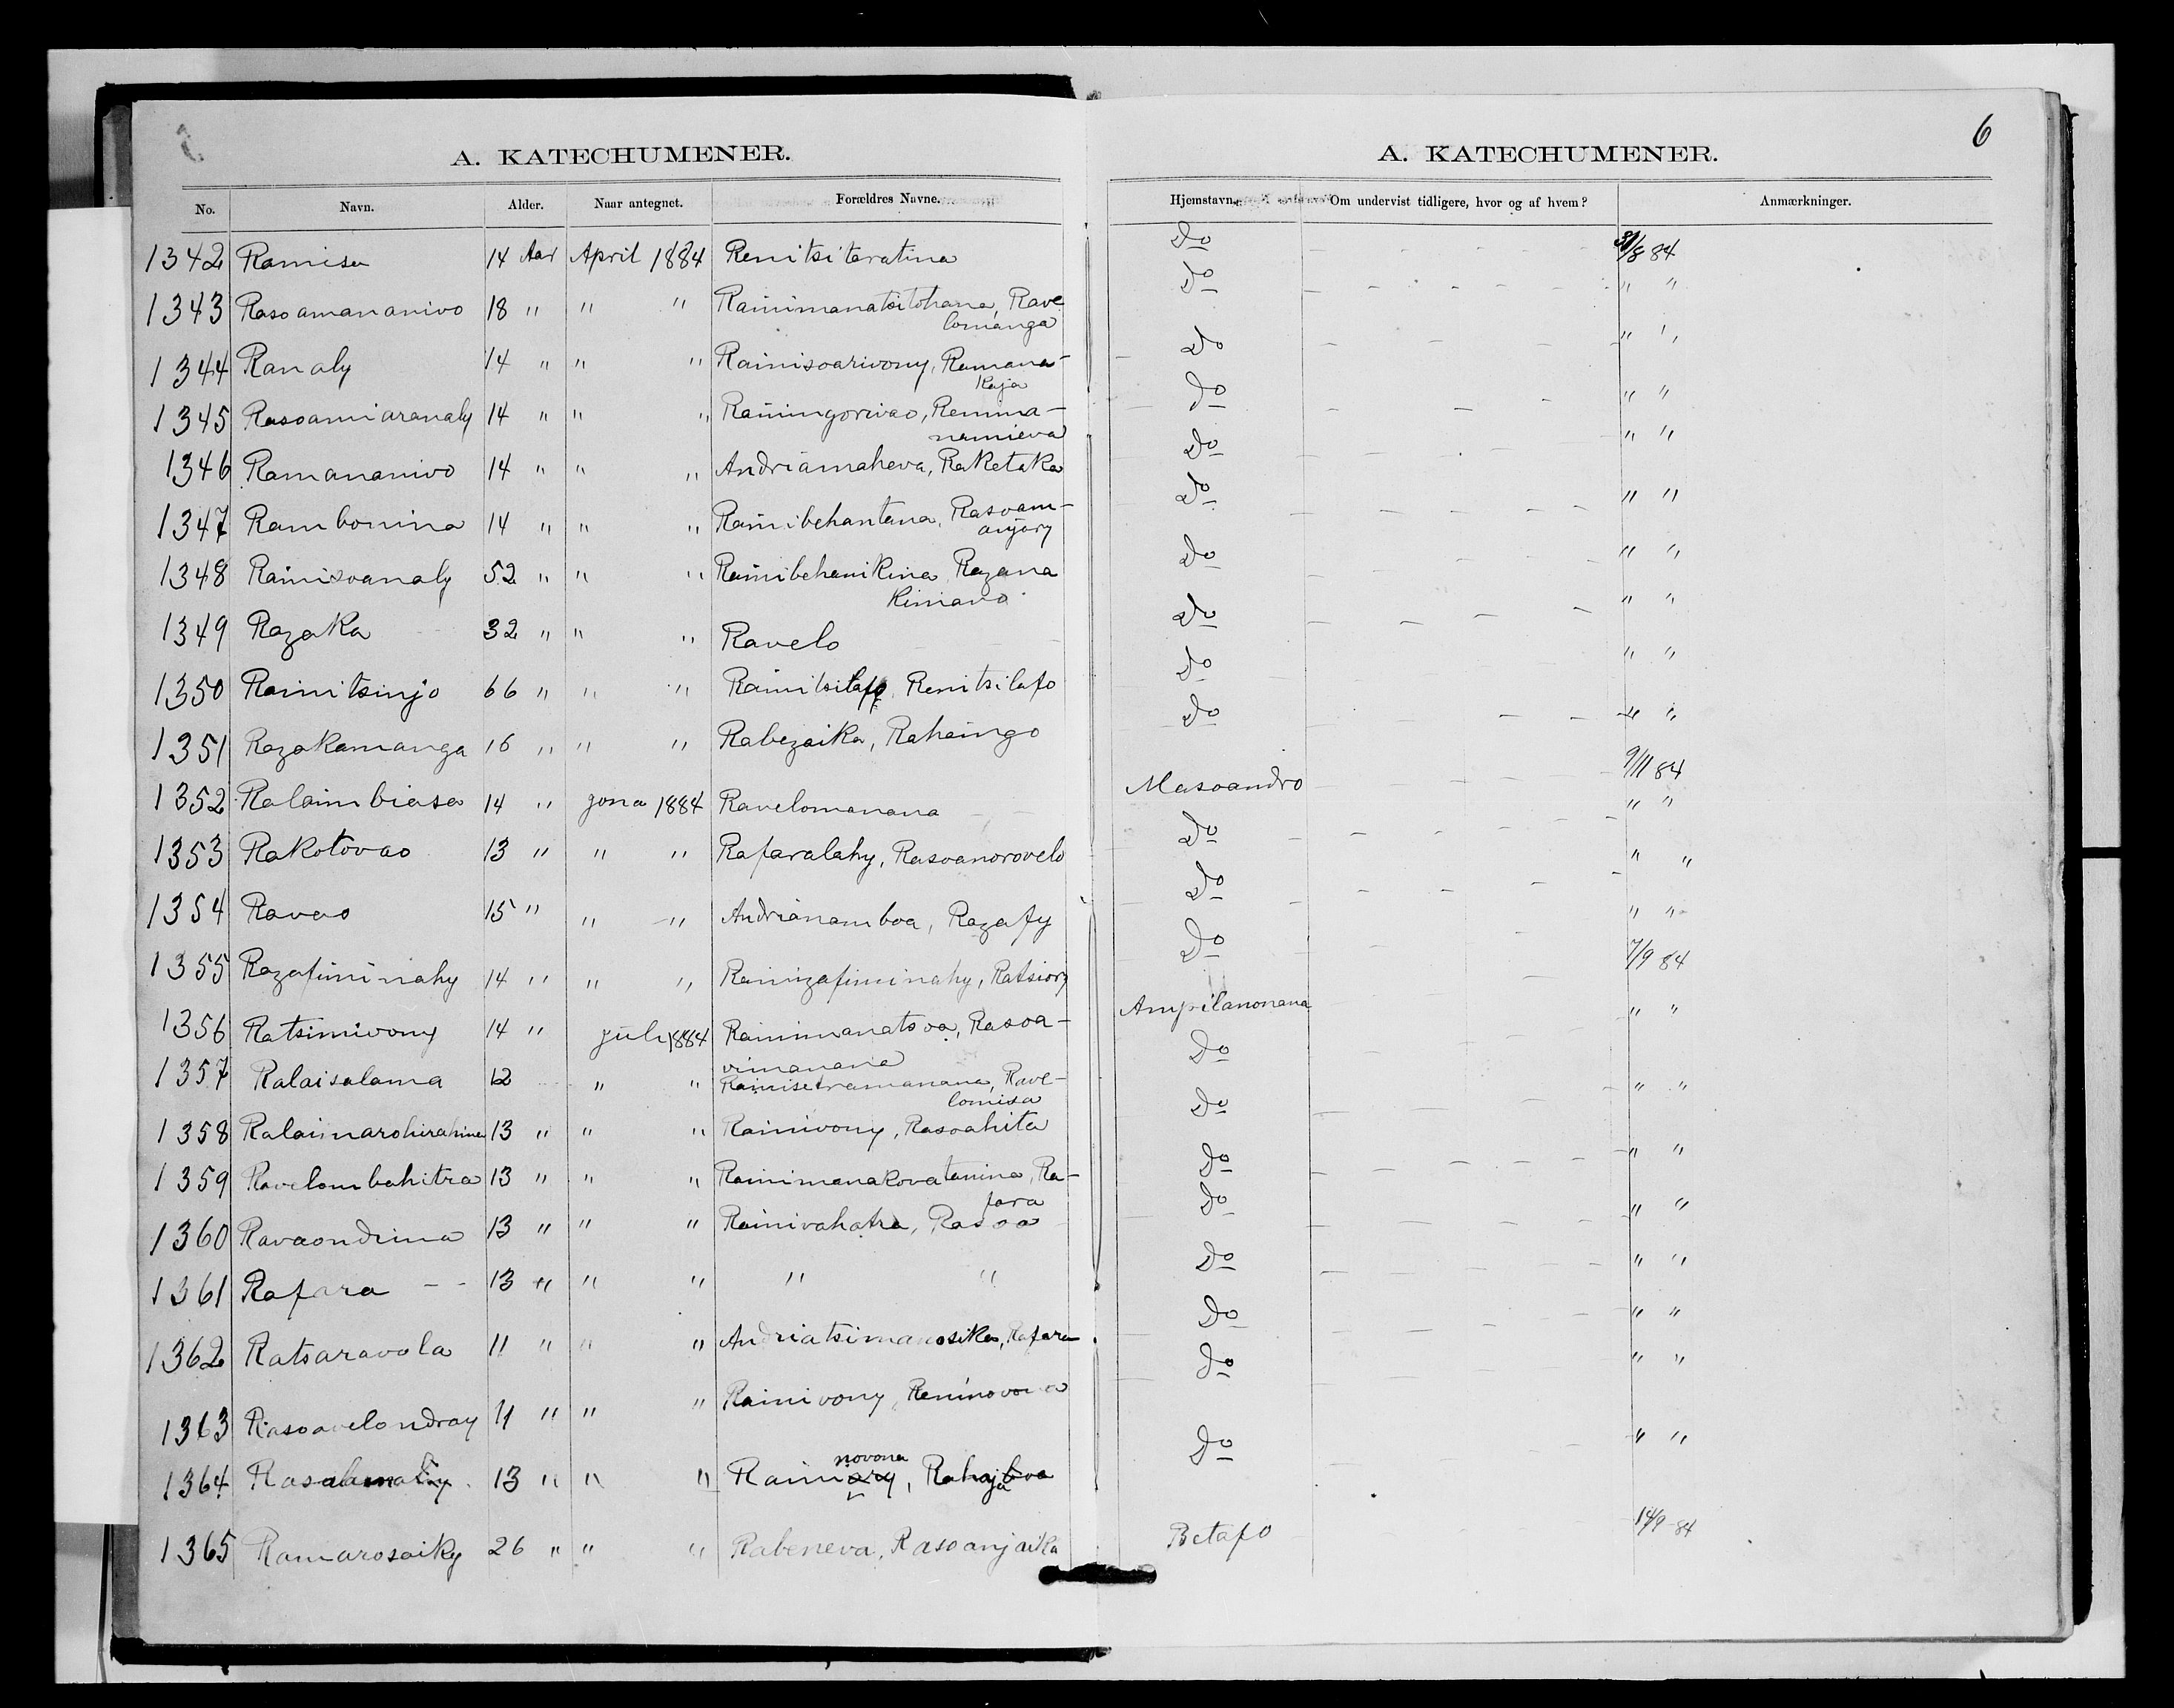 6
A. KATECHUMENER.
A. KATECHUMENER.
No. Navn. Alder. Naar antegnet. Forældres Navne. Hjemstavn. Om undervist tidligere, hvor og af hvem? Anmærkninger.
1342 Ramisa 14 Aar April 1884 Renitsiteratina Do 31/8 84
1343 Rasoamananivo 18 " " " Rainimanatsitohana, Rave Do " "
lomanga
1344 Ranaly 14 " " " Rainisoarivony, Ramana- Do " "
Kaja
1345 Rasoamiaranaly 14 " " " Rainingorivao, Renima- Do " "
namieva
1346 Ramananivo 14 " " " Andriamaheva, Raketaka Do " "
1347 Rambonina 14 " " " Rainibehantana, Rasoam- Do " "
anjary
1348 Rainisoanaly 52 " " " Rainibehanikina Razana Do " "
Kimavo
1349 Razaka 32 " " " Ravelo Do " "
1350 Rainitsinjo 66 " " " Rainitsilafo, Renitsilafo Do " "
1351 Razakamanga 16 " " " Rabezaika, Rahaingo Do " "
1352 Ralaimbiasa 14 " Jona 1884 Ravelomanana Masoandro 9/11 84
1353 Rakotovao 13 " " " Rafaralahy, Rasoanorovelo Do " "
1354 Ravao 15 " " " Andrianamboa, Razafy Do " "
1355 Razafiminahy 14 " " " Rainizafiminahy, Ratsiory Do " "
1356 Ratsimivony 14 " Juli 1884 Rainimanatsoa, Rasoa- Ampilanonana 7/9 84
vimanana
1357 Ralaisalama 12 " " Rainisetramanana, Rave- Do " "
lomisa
1358 Ralaimarohirahina 13 " " " Rainivony, Rasoahita Do " "
1359 Ravelombahitra 13 " " " Rainimanakovatanina, Ra- Do " "
fara
1360 Ravaondrina 13 " " " Rainivahatra, Rasoa Do " "
1361 Rafara 13 " " " " " Do " "
1362 Ratsaravola 11 " " " Andriatsimanosika, Rafara Do " "
1363 Rasoavelondray 11 " " " Rainivony, Reninovona Do " "
novona
1364 13 " " " Do " "
1365 Ramarosaiky 26 " " " Rabeneva, Rasoanjaika Betafo 14/9 84